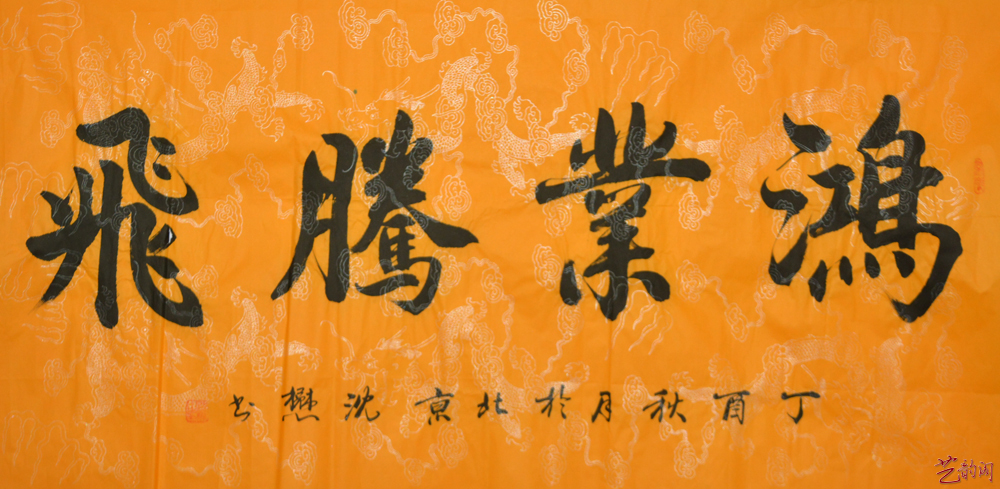 鴻業騰飛
丁酉秋月於北京沈懋书
艺韵阁